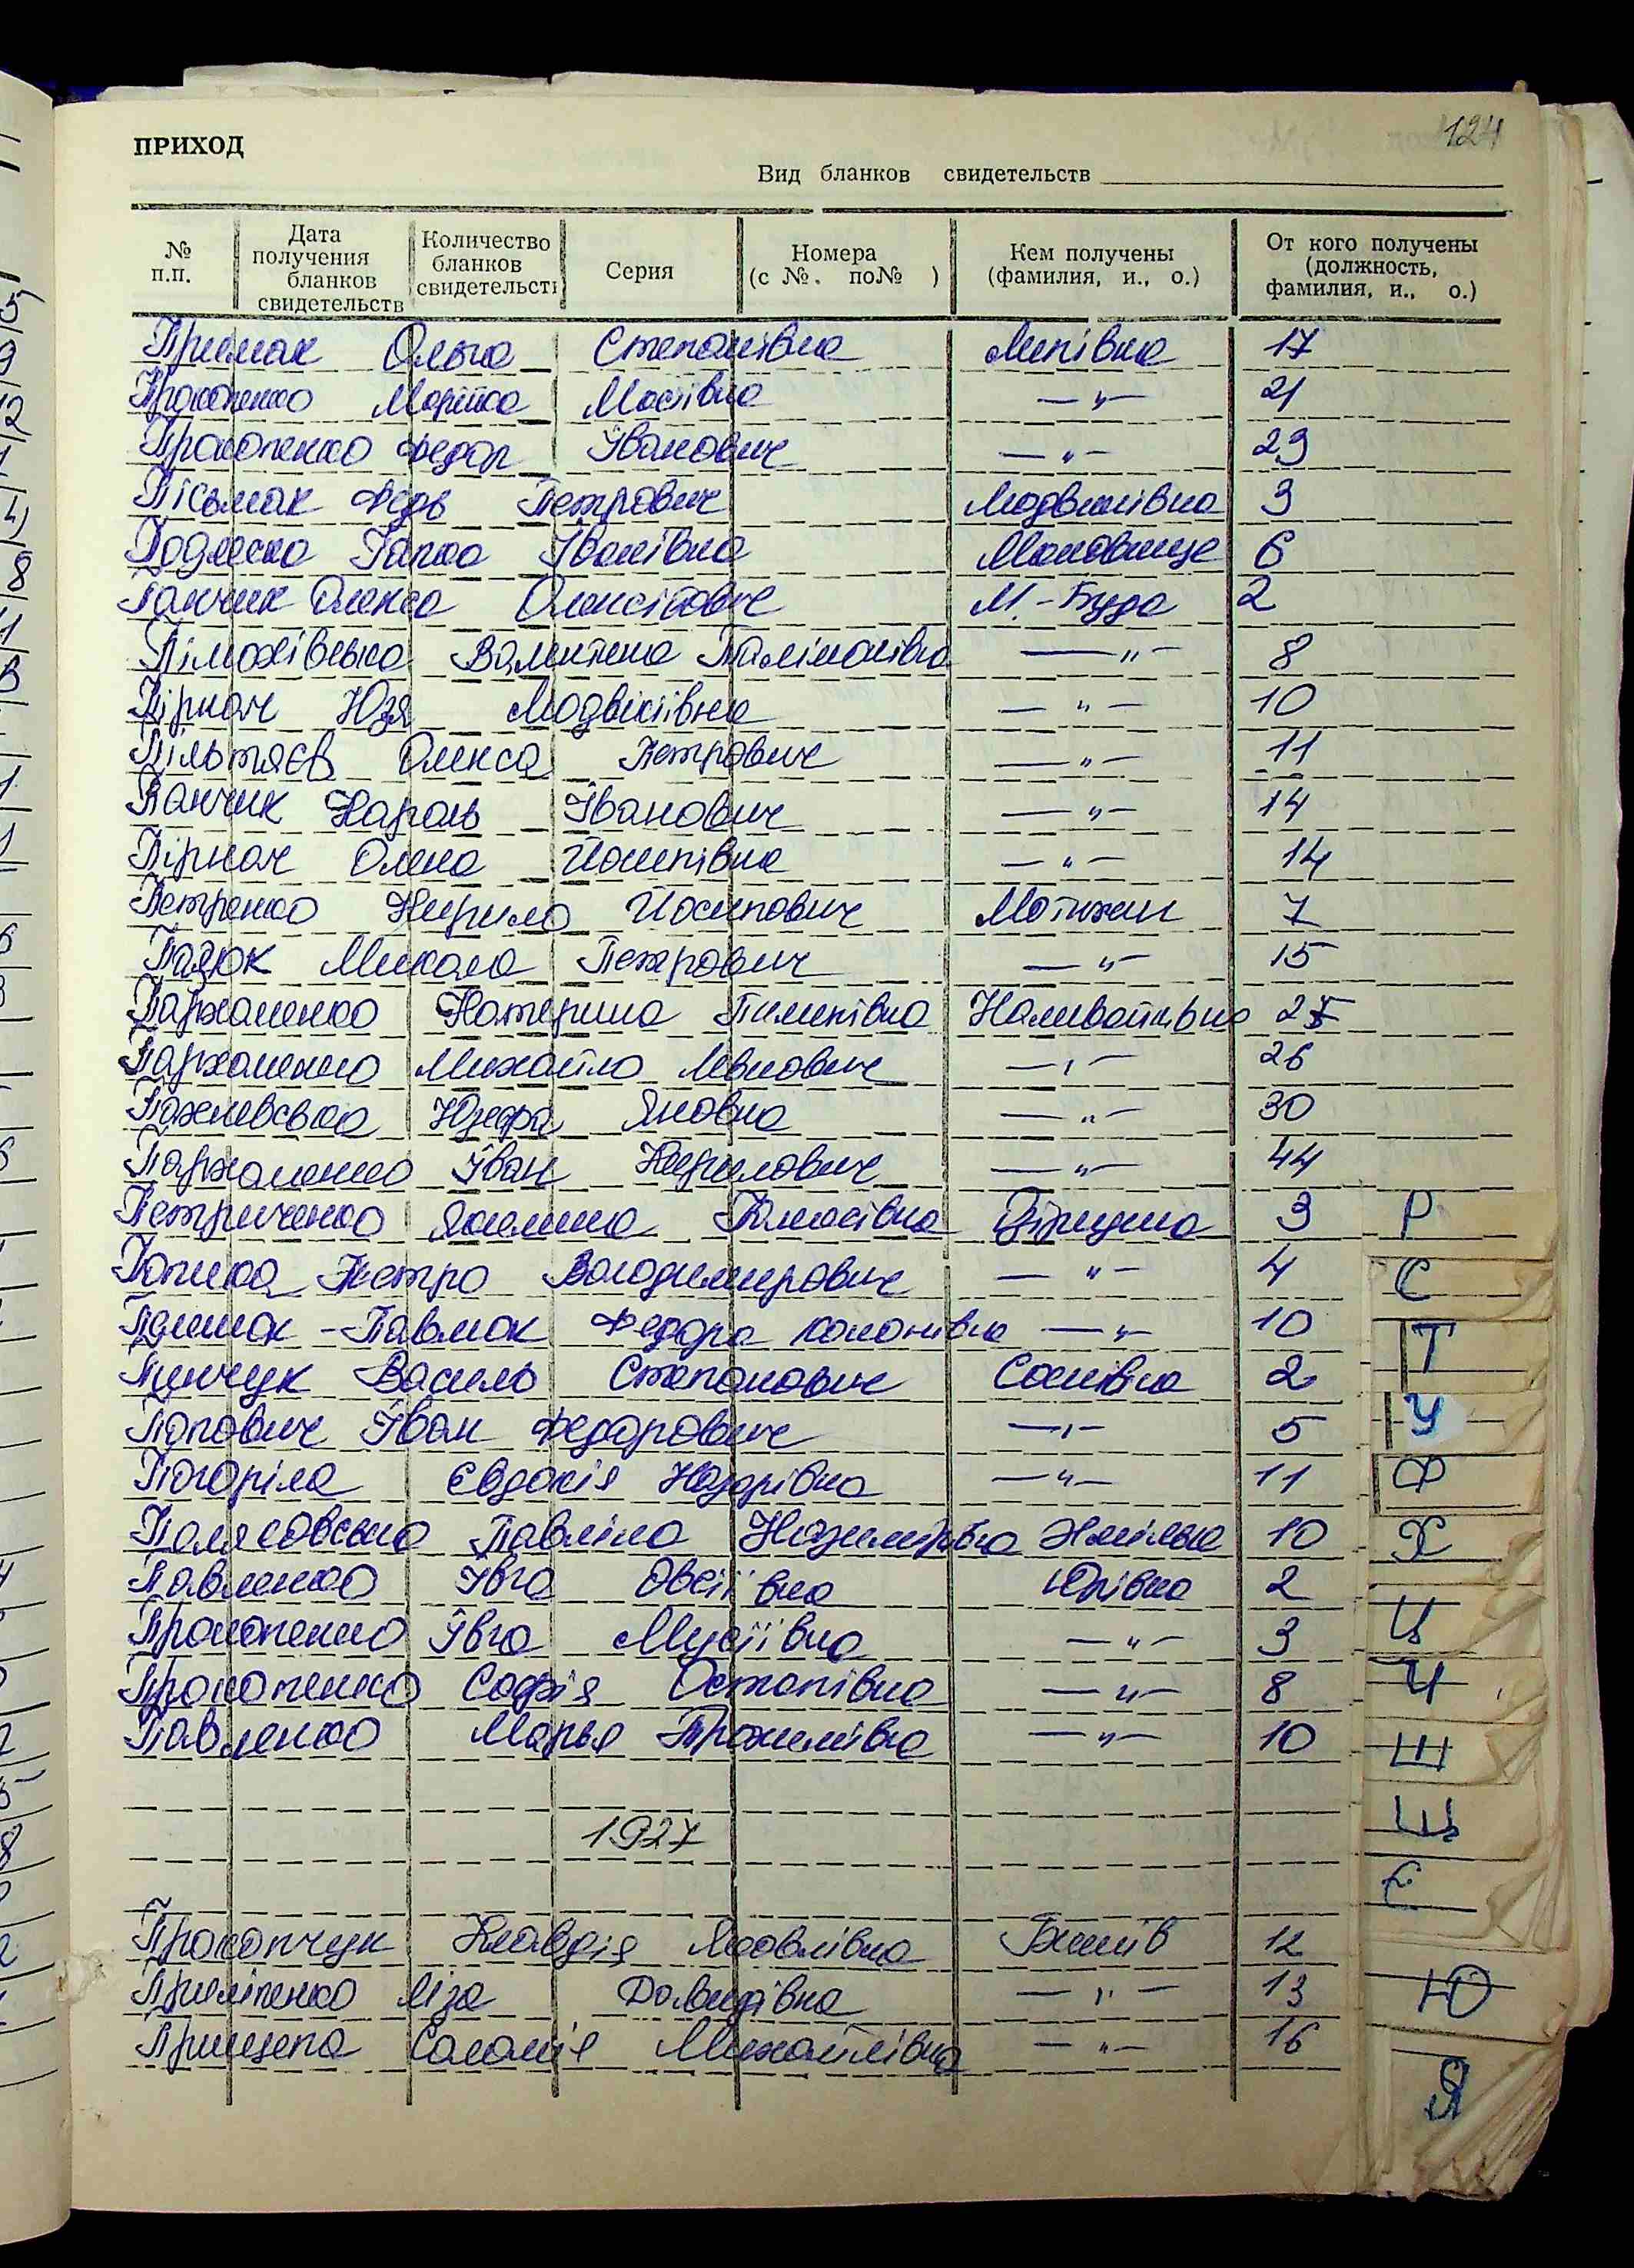 124
ПРИХОД
Вид бланков свидетельств
№ п.п. Дата получения бланков свидетельств Количество бланков свидетельств Серия Номера (с №. по№ ) Кем получены (фамилия, и., о.) От кого получены (должность, фамилия, и., о.)
Примак Ольга Степанівна Липівка 17
Прокопенко Марійка Масіївна —"— 21
Прокопенко Федор Іванович —"— 29
Пісьмак Федь Петрович Людвинівка 3
Подлеска Гапка Іванівна Маковище 6
Панчик Олекса Олексійович М.-Буда 2
Валентина —"— 8
Пірнач Юзя Людвіківна —"— 10
Олекса Петрович —"— 11
Панчик Кароль Іванович —"— 14
Пірнач Олена Йосипівна —"— 14
Петренко Кирило Йосипович Мотижин 7
Пазюк Микола Петрович —"— 15
Пархоменко Катерина Пименівна Наливайківка 25
Пархоменко Михайло Левкович —"— 26
Юзефа Яновна —"— 30
Пархоменко Іван Кирилович —"— 44
Петриченко Якилина Панасівна 3 Р
Петро Володимирович —"— 4 С
-Павлюк Федора —"— 10 Т
Пинчук Василь Степанович Соснівка 2
Попович Іван Федорович —"— 5 У
Погоріла Євдокія Назарівна —"— 11 Ф
Павліна Казимірівна 10 Х
Павленко Івга Овсіївна Юрівка 2
Прокопенко Івга Мусіївна —"— 3 Ц
Прокопенко Софія Остапівна —"— 8 Ч
Павленко Марья —"— 10 Ш
1927 Щ
Є
Прокопчук Клавдія Яковлівна Бишів 12
Приліпенко Ліза Давидівна —"— 13 Ю
Прищепа Саламія Михайлівна —"— 16
Я